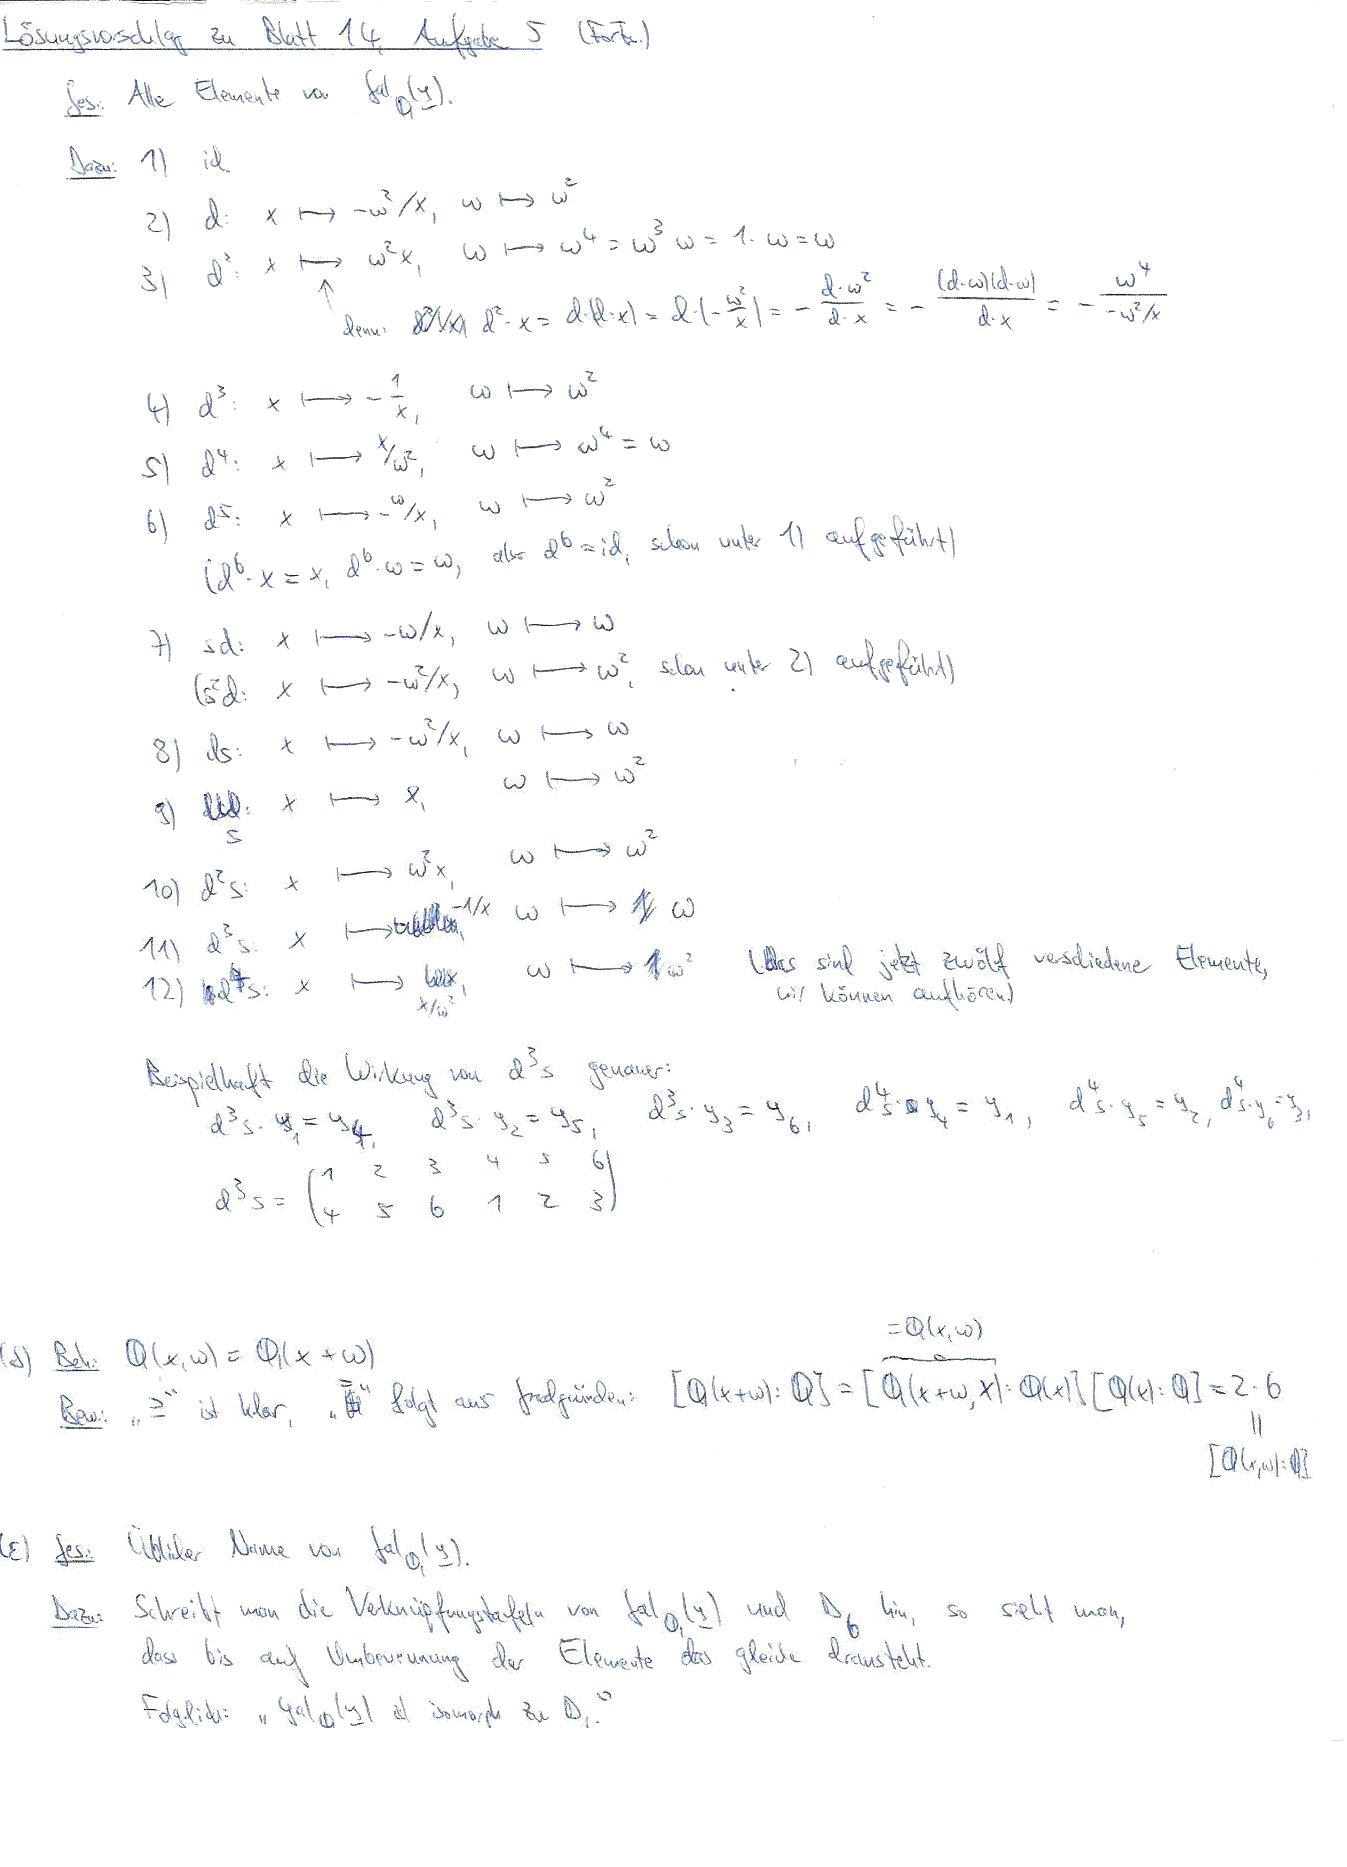 Lösungsvorschlag zu Blatt 14, Aufgabe 5 (Forts.)
Ges.: Alle Elemente von Gal_ℚ(y).
Dazu: 1) id
2) d: x ↦ -ω²/x, ω ↦ ω²
3) d²: x ↦ ω²x, ω ↦ ω⁴ = ω³ω = 1·ω = ω
denn: d²·x = d·(d·x) = d·(-ω²/x) = - d·ω²/d·x = - (d·ω)(d·ω)/d·x = - ω⁴/-ω²/x
4) d³: x ↦ -1/x, ω ↦ ω²
5) d⁴: x ↦ x/ω², ω ↦ ω⁴ = ω
6) d⁵: x ↦ -ω/x, ω ↦ ω²
(d⁶·x = x, d⁶·ω = ω, also d⁶ = id, schon unter 1) aufgeführt)
7) sd: x ↦ -ω/x, ω ↦ ω
(s²d: x ↦ -ω²/x, ω ↦ ω², schon unter 2) aufgeführt)
8) ds: x ↦ -ω²/x, ω ↦ ω
9) s: x ↦ x, ω ↦ ω²
10) d²s: x ↦ ω²x, ω ↦ ω²
11) d³s: x ↦ -1/x ω ↦ ω
12) d⁴s: x ↦ x/ω², ω ↦ ω² (Das sind jetzt zwölf verschiedene Elemente,
wir können aufhören)
Beispielhaft die Wirkung von d³s genauer:
d³s·y₁ = y₄, d³s·y₂ = y₅, d³s·y₃ = y₆, d⁴s·y₄ = y₁, d⁴s·y₅ = y₂, d⁴s·y₆ = y₃,
d³s = (1 2 3 4 5 6
4 5 6 1 2 3)
= ℚ(x,ω)
(δ) Beh.: ℚ(x,ω) = ℚ(x+ω)
Bew.: „⊇“ ist klar, „=“ folgt aus Gradgründen: [ℚ(x+ω):ℚ] = [ℚ(x+ω,x):ℚ(x)][ℚ(x):ℚ] = 2·6
||
[ℚ(x,ω):ℚ]
(ε) Ges.: Üblicher Name von Gal_ℚ(y).
Dazu: Schreibt man die Verknüpfungstafeln von Gal_ℚ(y) und D₆ hin, so sieht man,
dass bis auf Umbenennung der Elemente das gleiche dransteht.
Folglich: „Gal_ℚ(y) ist isomorph zu